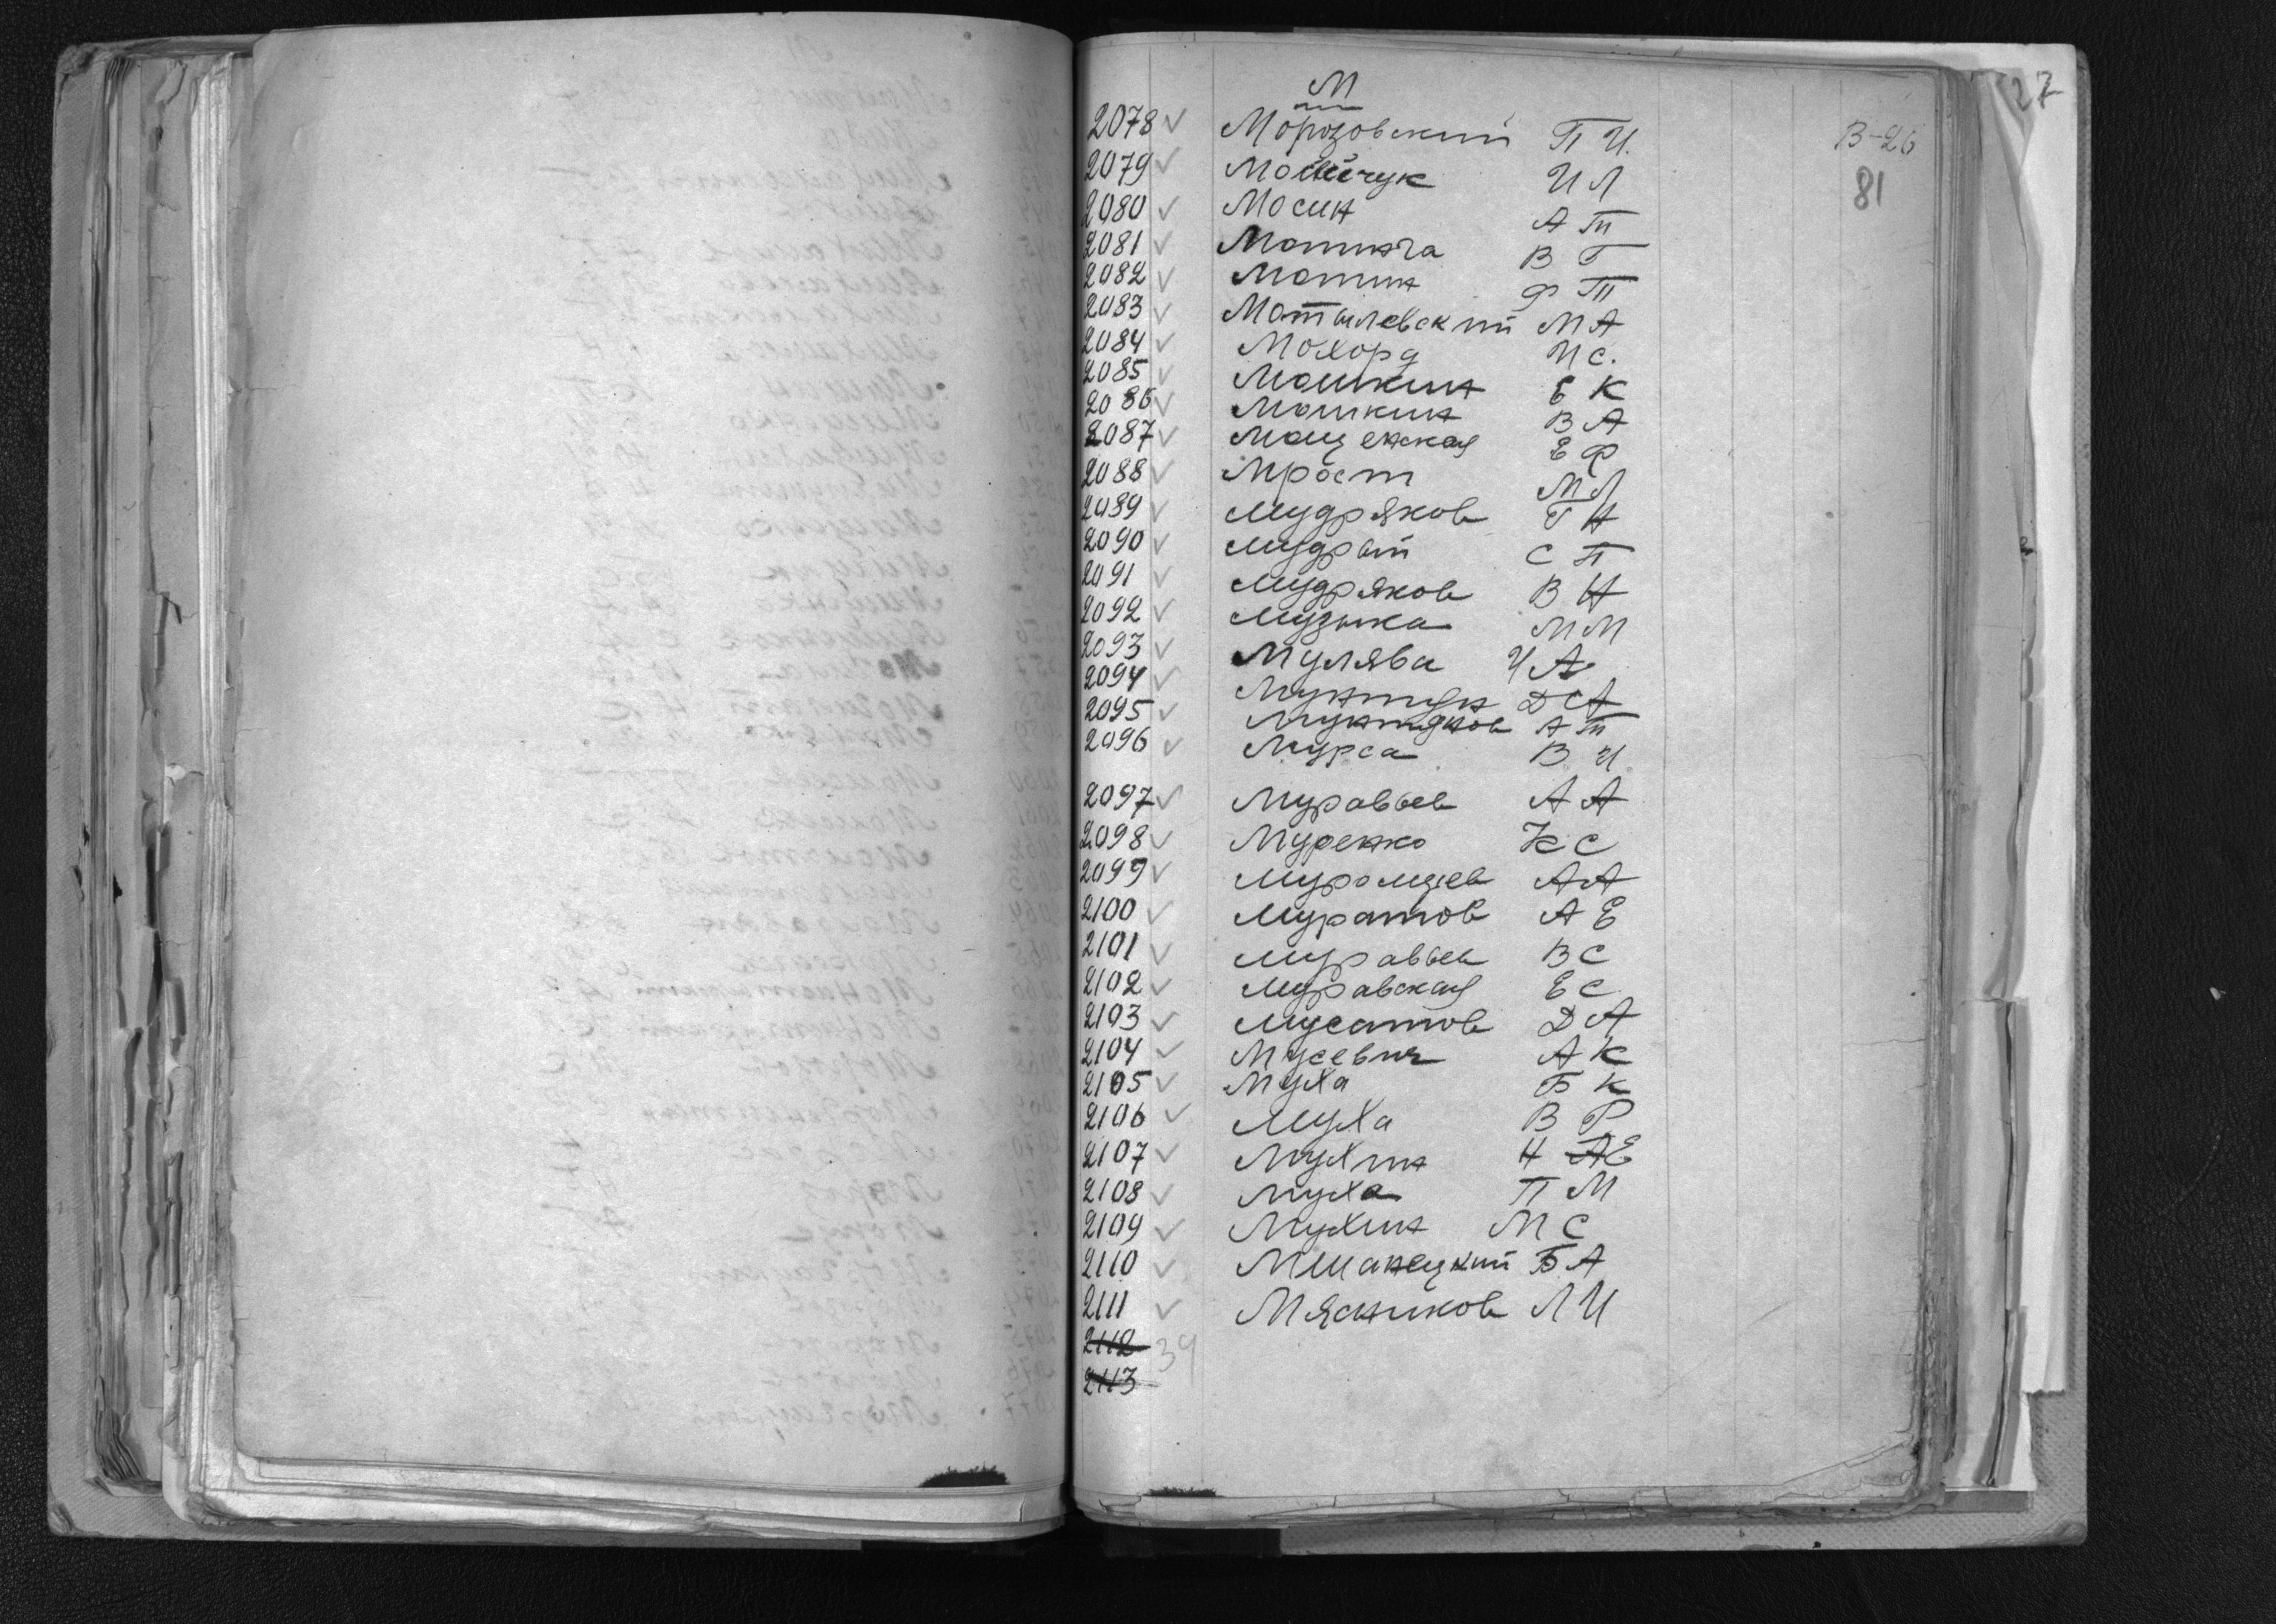 27
М
2078 ✓ Морозовский П И. В-26
2079 ✓ Мойсейчук И Л 81
2080 ✓ Мосин А Т
2081 ✓ Мотинга В Г
2082 ✓ Мотин Ф П
2083 ✓ Мотылевский М А
2084 ✓ Мохорд И С.
2085 ✓ Мошкин Е К
2086 ✓ Мошкин В А
2087 ✓ Мощенская Е Ф
2088 ✓ Мрост М Л
2089 ✓ Мудряков Г Н
2090 ✓ Мудрый С П
2091 ✓ Мудряков В Н
2092 ✓ Музыка М М
2093 ✓ Мулява И А
2094 ✓ Мунтян Д А
2095 ✓ Мунтянов А Т
2096 ✓ Мурса В И
2097 ✓ Муравьев А А
2098 ✓ Муренко К С
2099 ✓ Муромцев А А
2100 ✓ Муратов А Е
2101 ✓ Муравьев В С
2102 ✓ Муравская Е С
2103 ✓ Мусатов Д А
2104 ✓ Мусевич А К
2105 ✓ Муха Б К
2106 ✓ Муха В Р
2107 ✓ Мухин Н А Е
2108 ✓ Муха П М
2109 ✓ Мухин М С
2110 ✓ Мшанецкий Б А
2111 ✓ Мясников Л И
2112 34
2113